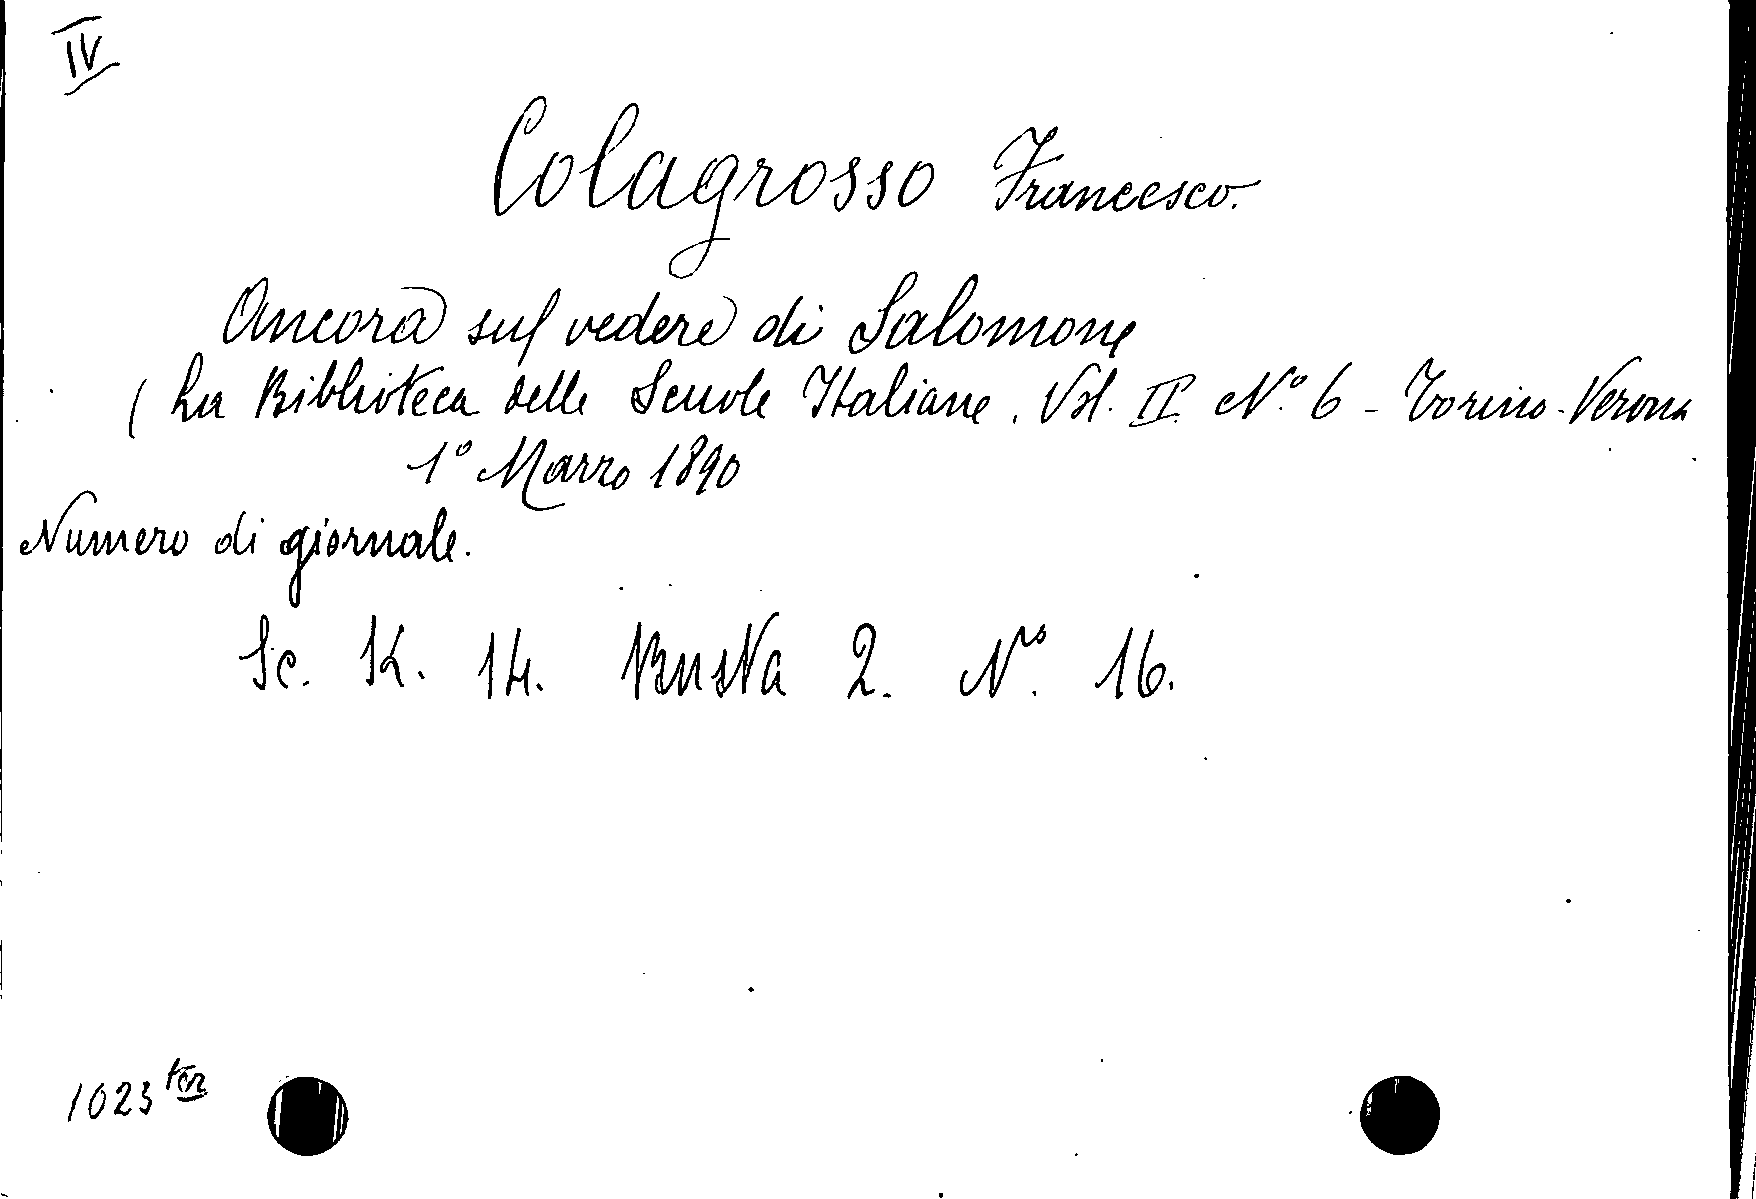 IV
Colagrosso Francesco.
Ancora sul vedere di Salomone
( La Biblioteca delle Scuole Italiane. Vol. II. N.° 6 - Torino-Verona
1° Marzo 1890
Numero di giornale.
Sc. K. 14. Busta 2. N.° 16.
1023 ter